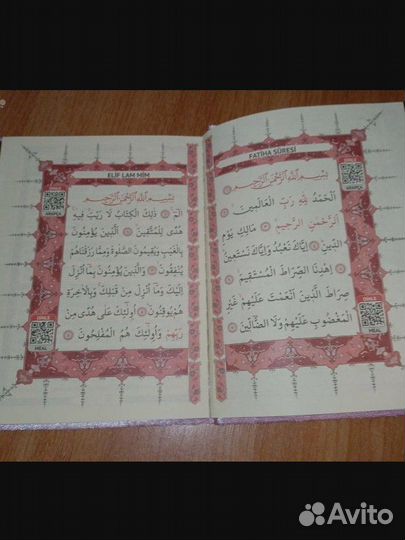 FATİHA SÛRESİ
بِسْمِ اللّٰهِ الرَّحْمٰنِ الرَّحِيمِ
اَلْحَمْدُ لِلّٰهِ رَبِّ الْعَالَمِينَ
اَلرَّحْمٰنِ الرَّحِيمِ مَالِكِ يَوْمِ
الدِّينِ اِيَّاكَ نَعْبُدُ وَاِيَّاكَ نَسْتَعِينُ
اِهْدِنَا الصِّرَاطَ الْمُسْتَقِيمَ
صِرَاطَ الَّذِينَ اَنْعَمْتَ عَلَيْهِمْ غَيْرِ
الْمَغْضُوبِ عَلَيْهِمْ وَلَا الضَّالِّينَ
ARAPÇA
DİNLE
ELİF LAM MİM
بِسْمِ اللّٰهِ الرَّحْمٰنِ الرَّحِيمِ
الٓمٓ ذٰلِكَ الْكِتَابُ لَا رَيْبَ فِيهِ
هُدًى لِلْمُتَّقِينَ اَلَّذِينَ يُؤْمِنُونَ
بِالْغَيْبِ وَيُقِيمُونَ الصَّلٰوةَ وَمِمَّا رَزَقْنَاهُمْ
يُنْفِقُونَ وَالَّذِينَ يُؤْمِنُونَ بِمَا اُنْزِلَ
اِلَيْكَ وَمَا اُنْزِلَ مِنْ قَبْلِكَ وَبِالْاٰخِرَةِ
هُمْ يُوقِنُونَ اُولٰٓئِكَ عَلٰى هُدًى مِنْ
رَبِّهِمْ وَاُولٰٓئِكَ هُمُ الْمُفْلِحُونَ
ARAPÇA
MEAL
Avito